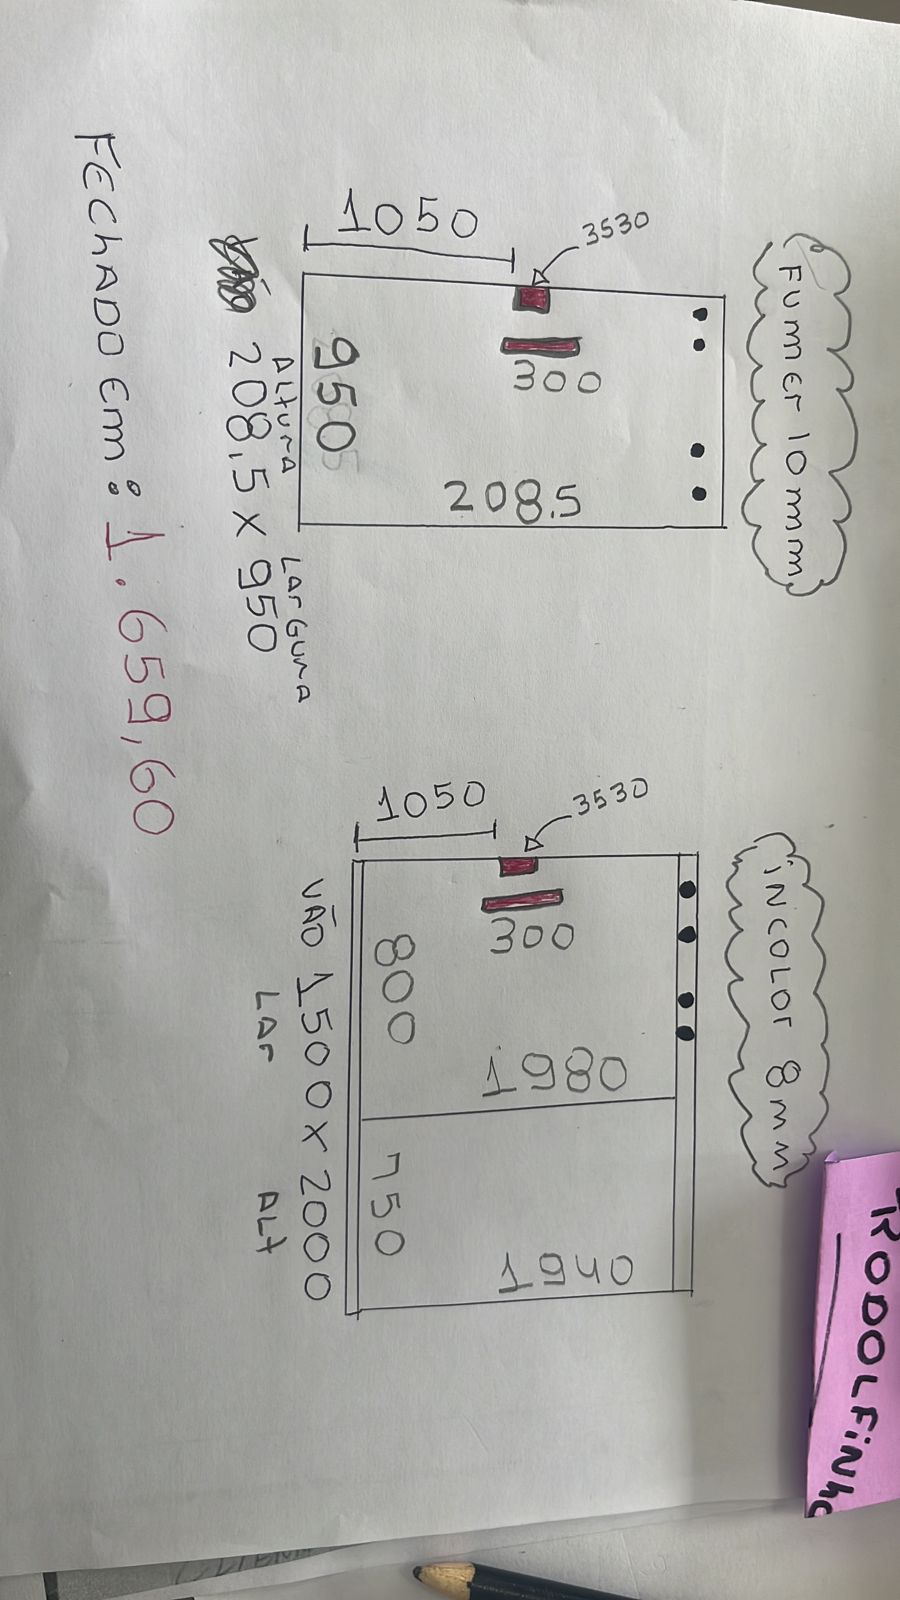 FUMER 10mm
3530
1050
300
950
208.5
ALTURA LARGURA
208,5 X 950
INCOLOR 8mm
3530
1050
300
800
1980
750
1940
VÃO 1500 X 2000
LAR ALT
FEChADO Em: 1.659,60
RODOLFINho